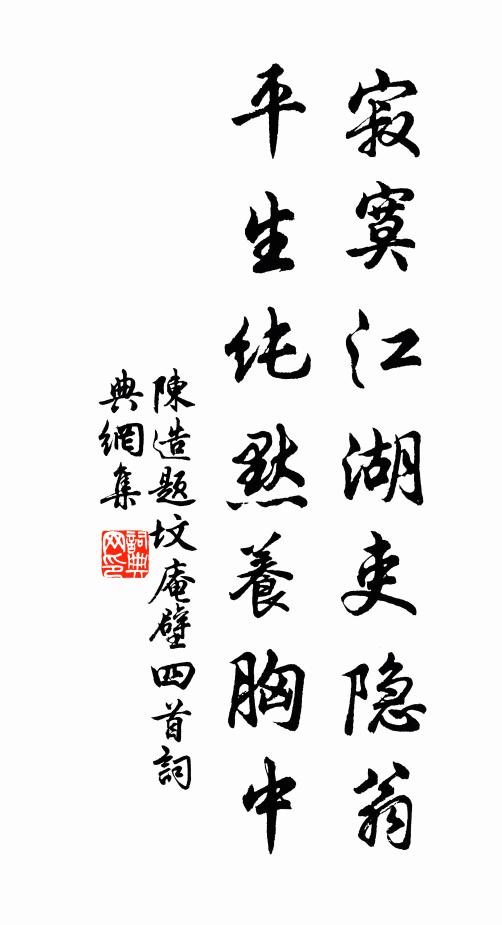 寂寞江湖吏隐翁
平生纯默養胸中
陳造题坟庵壁四首詞
典網集
詞典
网印